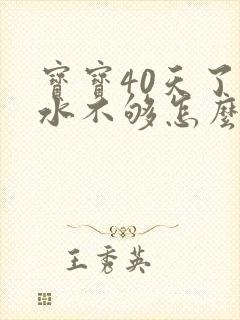 寶寶40天了
水不够怎麽
王秀英